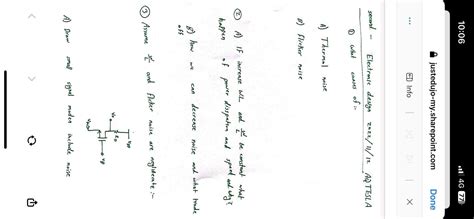 10:06
4G 72
justedujo-my.sharepoint.com
Done
Info
second - Electronic design 2022/11/12 AQTESLA
① what causes of :-
A) Thermal noise
B) Flicker noise
② A) IF increase W/L and be constant what
happen of power dissipation and speed and why?
B) how we can decrease noise and what trade
off
③ Assume and flicker noise are negligible :-
A) Draw small signal model include noise